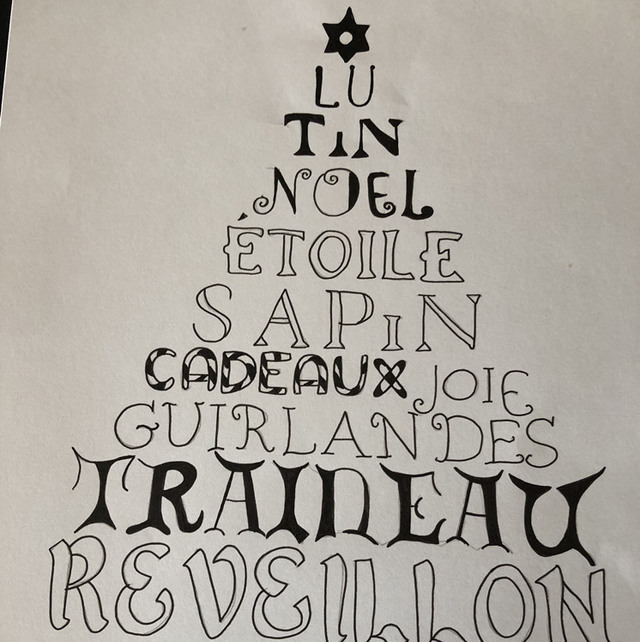 LU
TIN
NOEL
ÉTOILE
SAPIN
CADEAUX JOIE
GUIRLANDES
TRAINEAU
REVEILLON